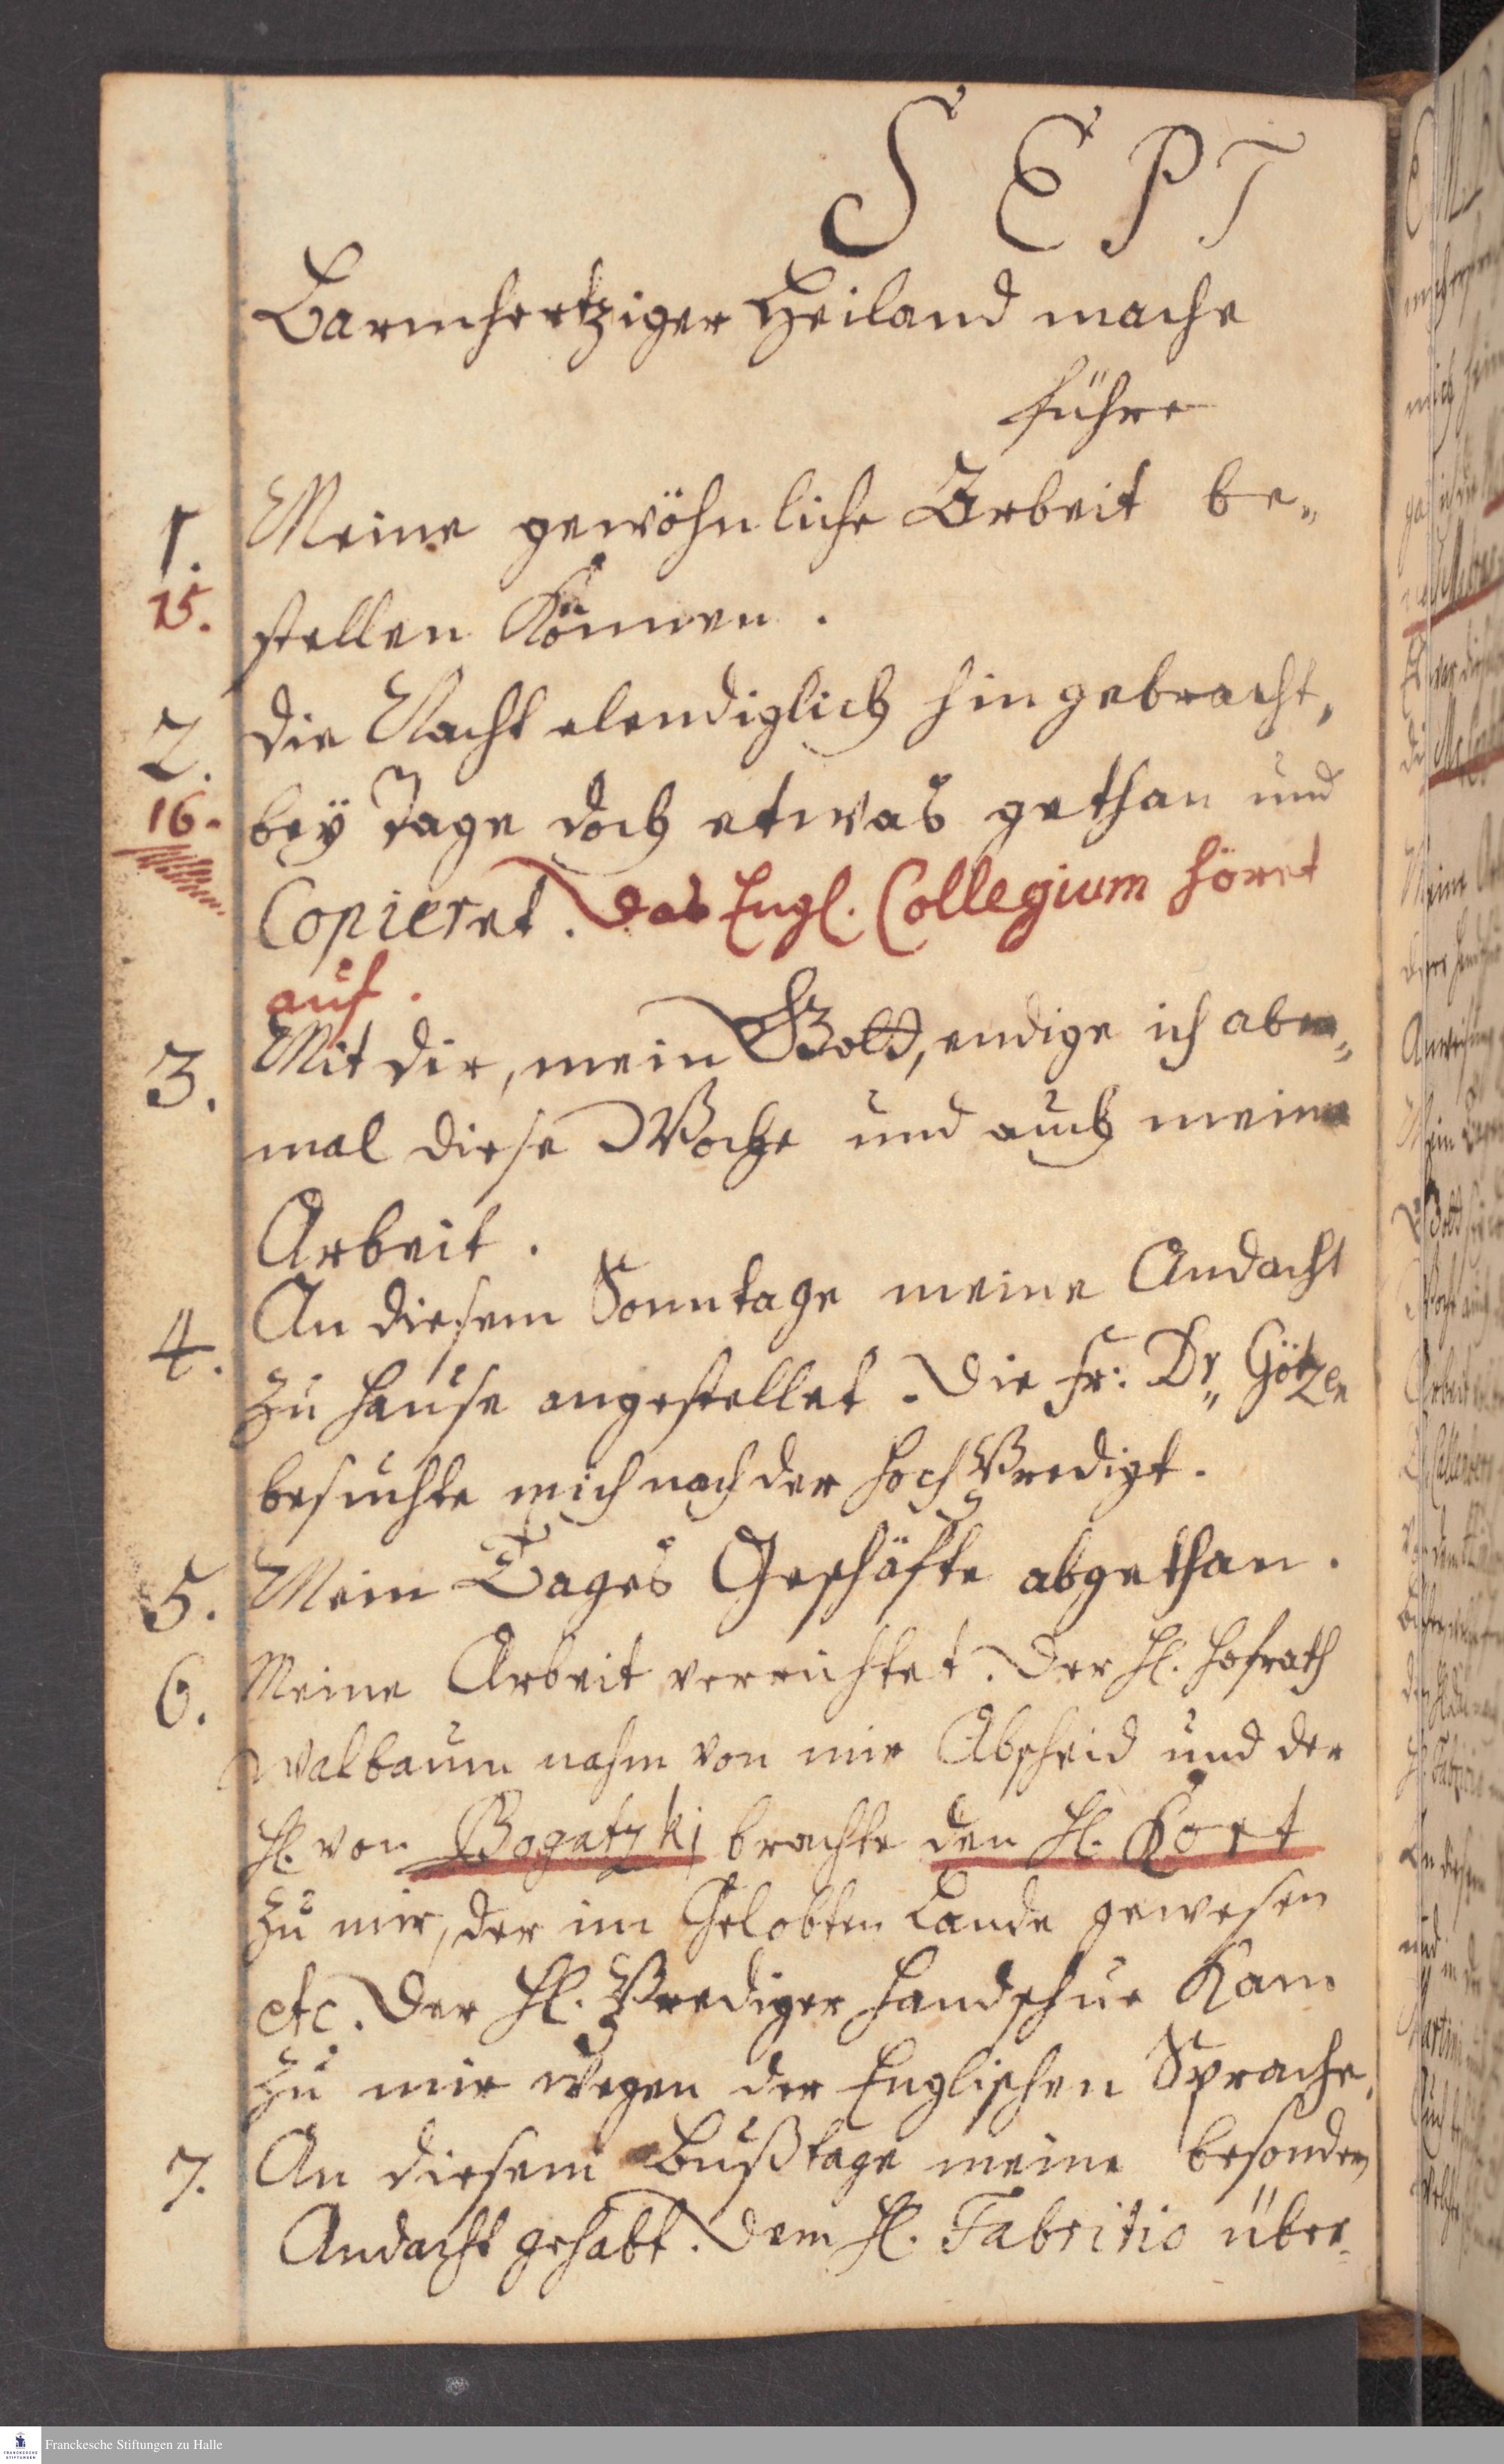 SEPT
Barmhertziger Heiland mache
führe
1. Meine gewöhnliche Arbeit be„
15. stellen können.
2. Die Nacht elendiglich hingebracht,
16. beÿ Tage doch etwas gethan und
Copieret. Das Engl. Collegium höret
auf.
3. Mit dir, mein Gott, endige ich aber„
mal diese Woche und auch meine
Arbeit.
4. An diesem Sonntage meine Andacht
zu Hause angestellet. Die Fr: Dr„ Götzen
besuchte mich nach der Hoch Predigt.
5. Mein Tages Geschäfte abgethan.
6. Meine Arbeit verrichtet. Der H. Hofrath
Walbaum nahm von mir Abscheid und der
H. von Bogatzki brachte den H. Kort
zu mir, der im Gelobten Lande gewesen
etc. Der H. Prediger Handschue kam
zu mir wegen der Englischen Sprache.
7. An diesem Bußtage meine besondere
Andacht gehabt. Dem H. Fabritio über-
Franckesche Stiftungen zu Halle